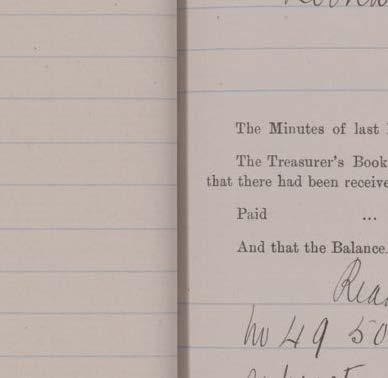 The Minutes of last
The Treasurer's Book
that there had been receive
Paid ...
And that the Balance
Rea
No 49 50